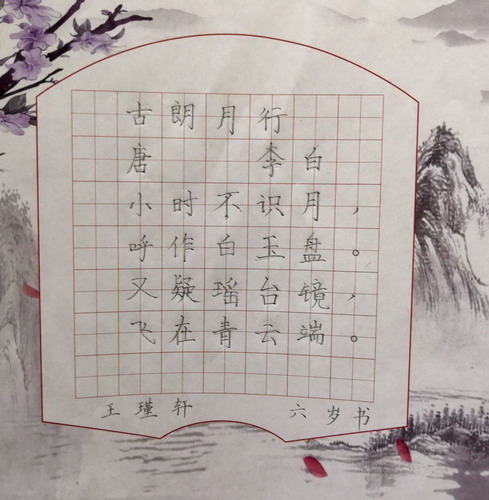 古朗月行
唐 李白
小时不识月，
呼作白玉盘。
又疑瑶台镜，
飞在青云端。
王瑾轩 六岁书